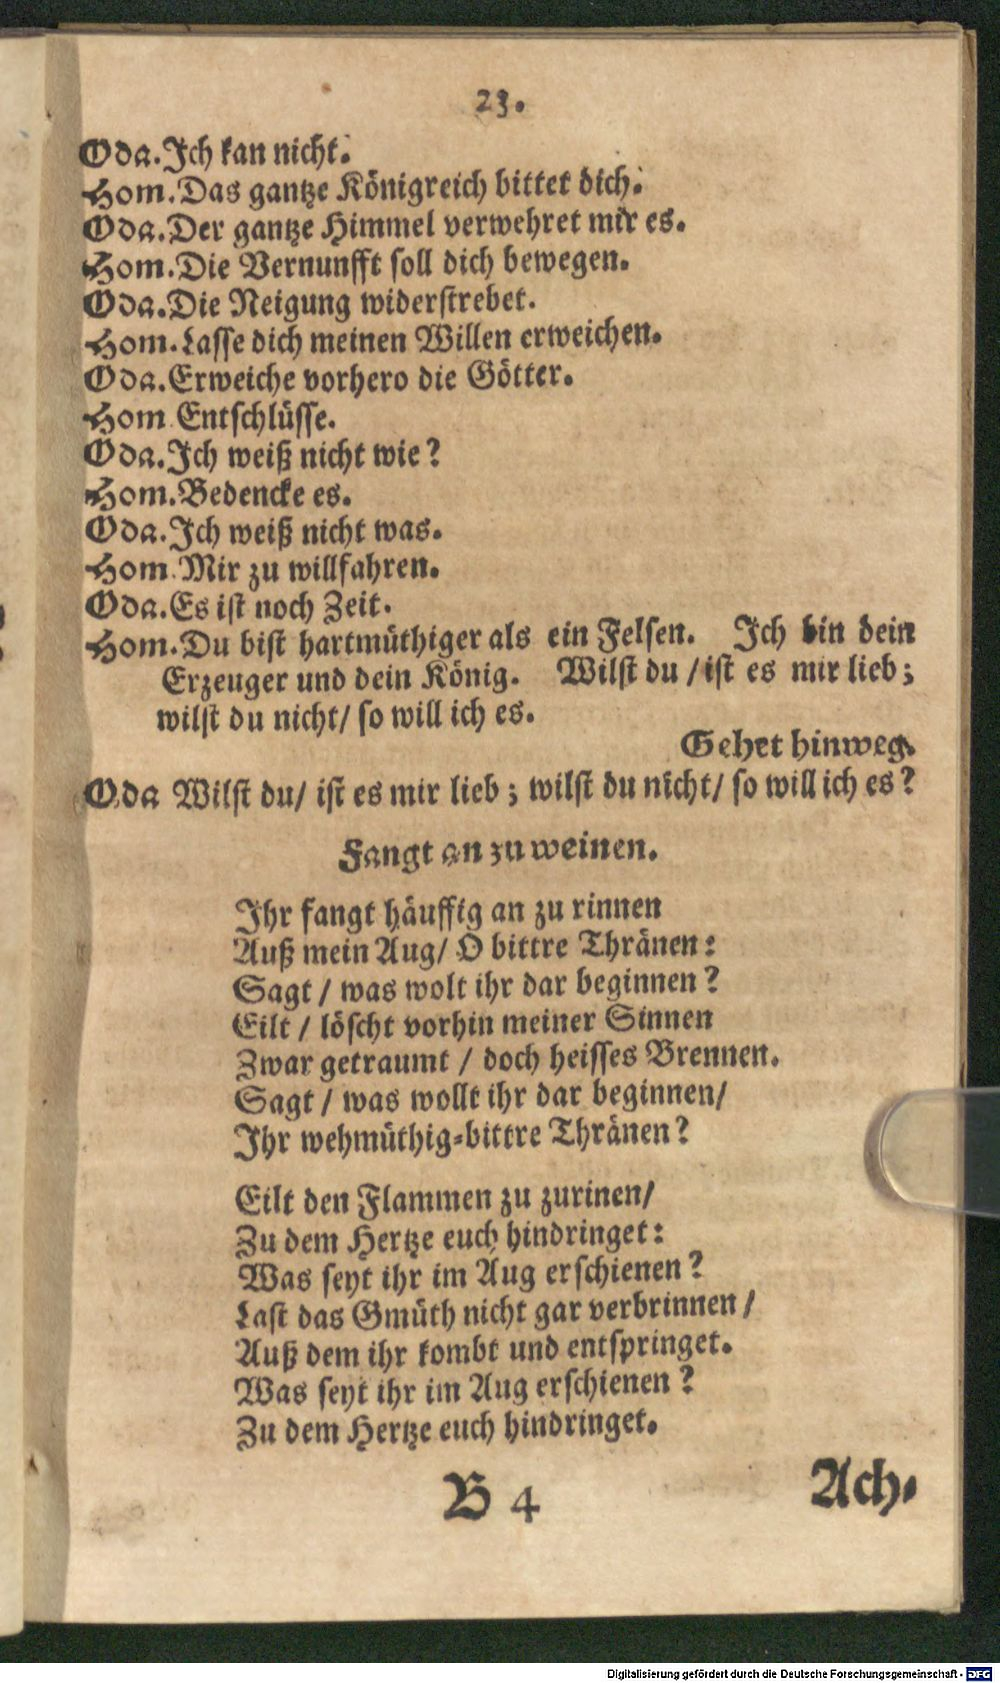 23.
Oda. Ich kan nicht.
Hom. Das gantze Königreich bittet dich.
Oda. Der gantze Himmel verwehret mir es.
Hom. Die Vernunfft soll dich bewegen.
Oda. Die Neigung widerstrebet.
Hom. Lasse dich meinen Willen erweichen.
Oda. Erweiche vorhero die Götter.
Hom. Entschlüsse.
Oda. Ich weiß nicht wie?
Hom. Bedencke es.
Oda. Ich weiß nicht was.
Hom. Mir zu willfahren.
Oda. Es ist noch Zeit.
Hom. Du bist hartmüthiger als ein Felsen. Ich bin dein
Erzeuger und dein König. Wilst du / ist es mir lieb;
wilst du nicht/ so will ich es.
Gehet hinweg.
Oda Wilst du/ ist es mir lieb; wilst du nicht/ so will ich es?
Fangt an zu weinen.
Ihr fangt häuffig an zu rinnen
Auß mein Aug/ O bittre Thränen:
Sagt / was wolt ihr dar beginnen?
Eilt / löscht vorhin meiner Sinnen
Zwar getraumt / doch heisses Brennen.
Sagt / was wollt ihr dar beginnen/
Ihr wehmüthig-bittre Thränen?
Eilt den Flammen zu zurinen/
Zu dem Hertze euch hindringet:
Was seyt ihr im Aug erschienen?
Last das Gmüth nicht gar verbrinnen /
Auß dem ihr kombt und entspringet.
Was seyt ihr im Aug erschienen?
Zu dem Hertze euch hindringet.
B 4
Ach.
Digitalisierung gefördert durch die Deutsche Forschungsgemeinschaft - DFG